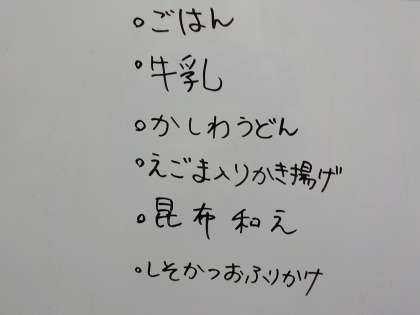 ○ごはん
○牛乳
○かしわうどん
○えごま入りかき揚げ
○昆布和え
○しそかつおふりかけ